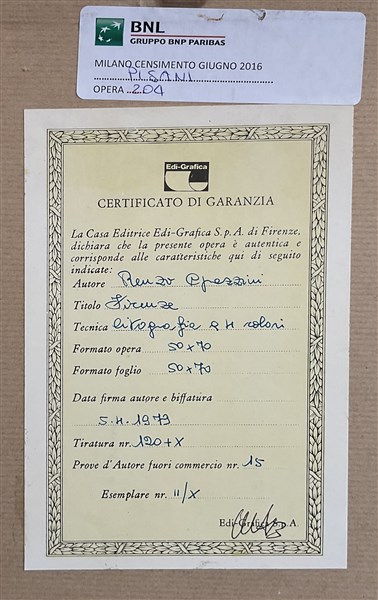 BNL
GRUPPO BNP PARIBAS
MILANO CENSIMENTO GIUGNO 2016
PISANI
OPERA 204
Edi-Grafica
CERTIFICATO DI GARANZIA
La Casa Editrice Edi-Grafica S.p.A. di Firenze,
dichiara che la presente opera è autentica e
corrisponde alle caratteristiche qui di seguito
indicate:
Autore Renzo
Titolo Firenze
Tecnica litografia a 4 colori
Formato opera 50x70
Formato foglio 50x70
Data firma autore e biffatura
5.4.1979
Tiratura nr. 120+X
Prove d'Autore fuori commercio nr. 15
Esemplare nr. II/X
Edi-Grafica S.p.A.